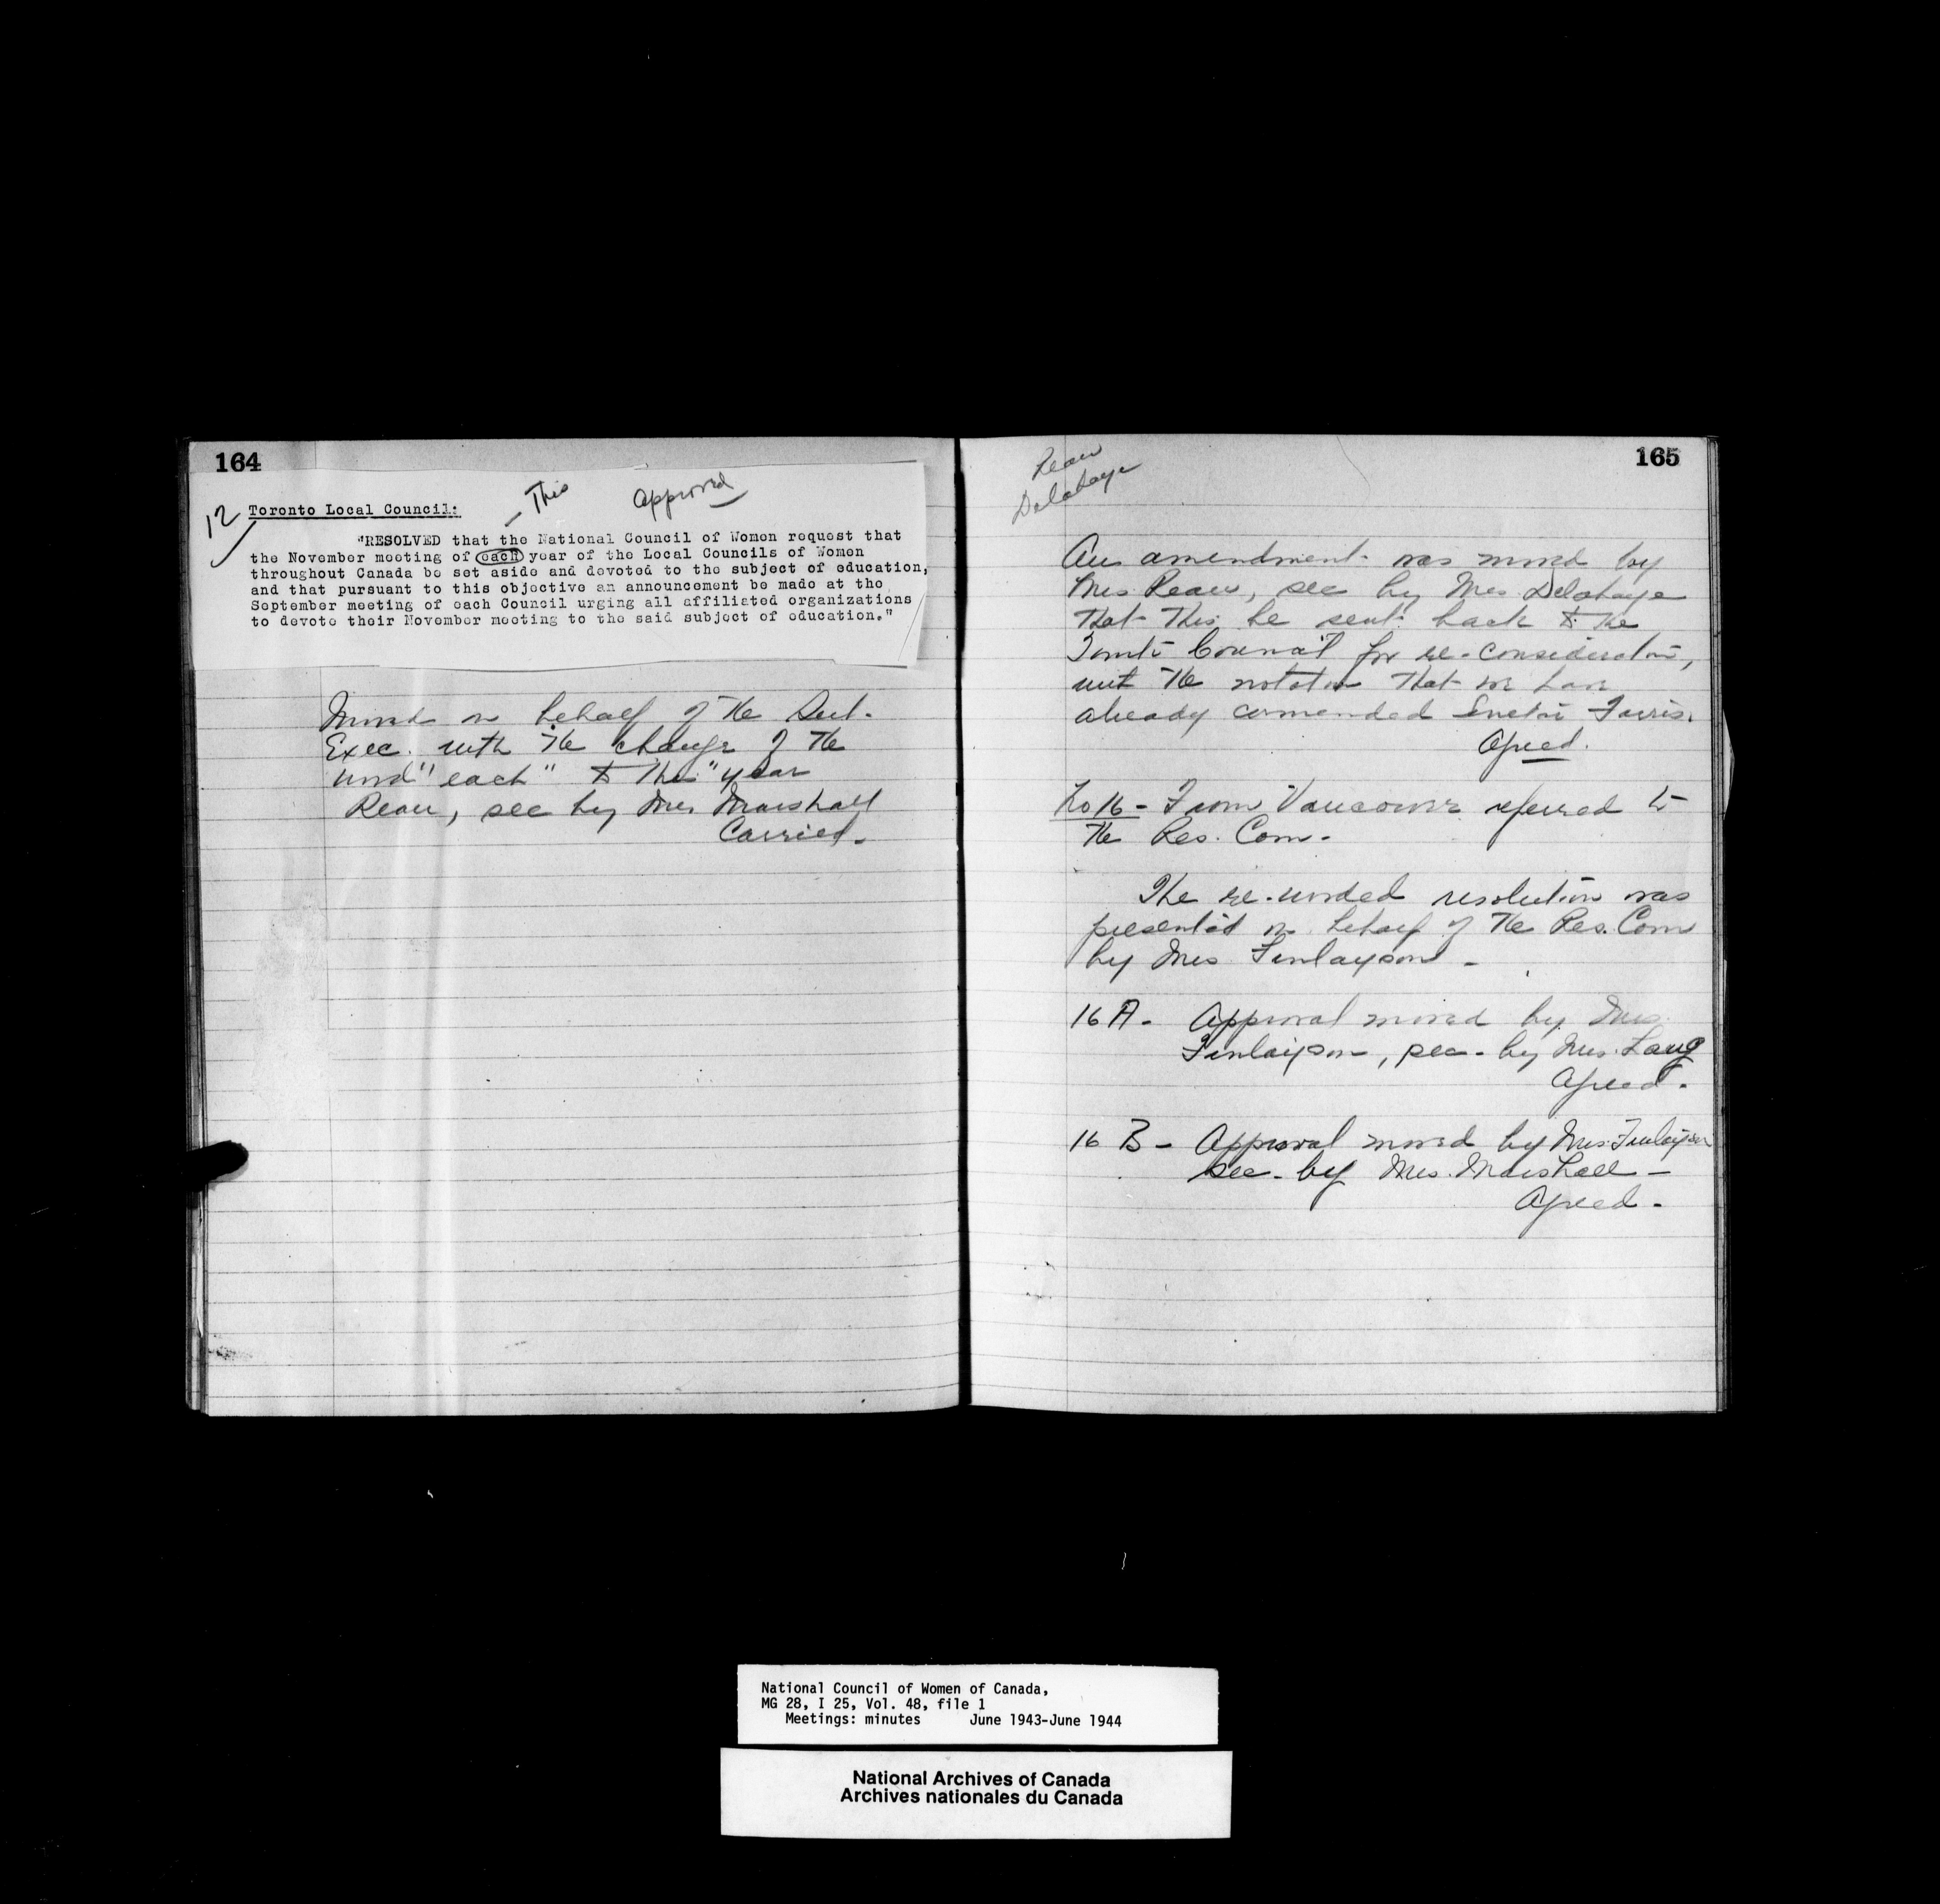 164
12
This
approved
Toronto Local Council:
"RESOLVED that the National Council of Women request that
the November meeting of each year of the Local Councils of Women
throughout Canada be set aside and devoted to the subject of education,
and that pursuant to this objective an announcement be made at the
September meeting of each Council urging all affiliated organizations
to devote their November meeting to the said subject of education."
Moved on behalf of the
Exec. with the change of the
word "each" to "this" year
Reau, sec by Mrs Marshall
Carried.
165
Reau
Delahaye
An amendment was moved by
Mrs. Reau, sec by Mrs. Delahaye
that this be sent back to the
Toronto Council for re-consideration,
with the notation that we have
already commended Senator Farris.
Agreed.
No 16 - From Vancouver referred to
the Res. Com.
The re-worded resolution was
presented on behalf of the Res. Com
by Mrs Finlayson -
16 A - Approval moved by Mrs.
Finlayson, sec. by Mrs. Lang
Agreed.
16 B - Approval moved by Mrs. Finlayson
sec. by Mrs. Marshall -
Agreed -
National Council of Women of Canada,
MG 28, I 25, Vol. 48, file 1
Meetings: minutes June 1943-June 1944
National Archives of Canada
Archives nationales du Canada